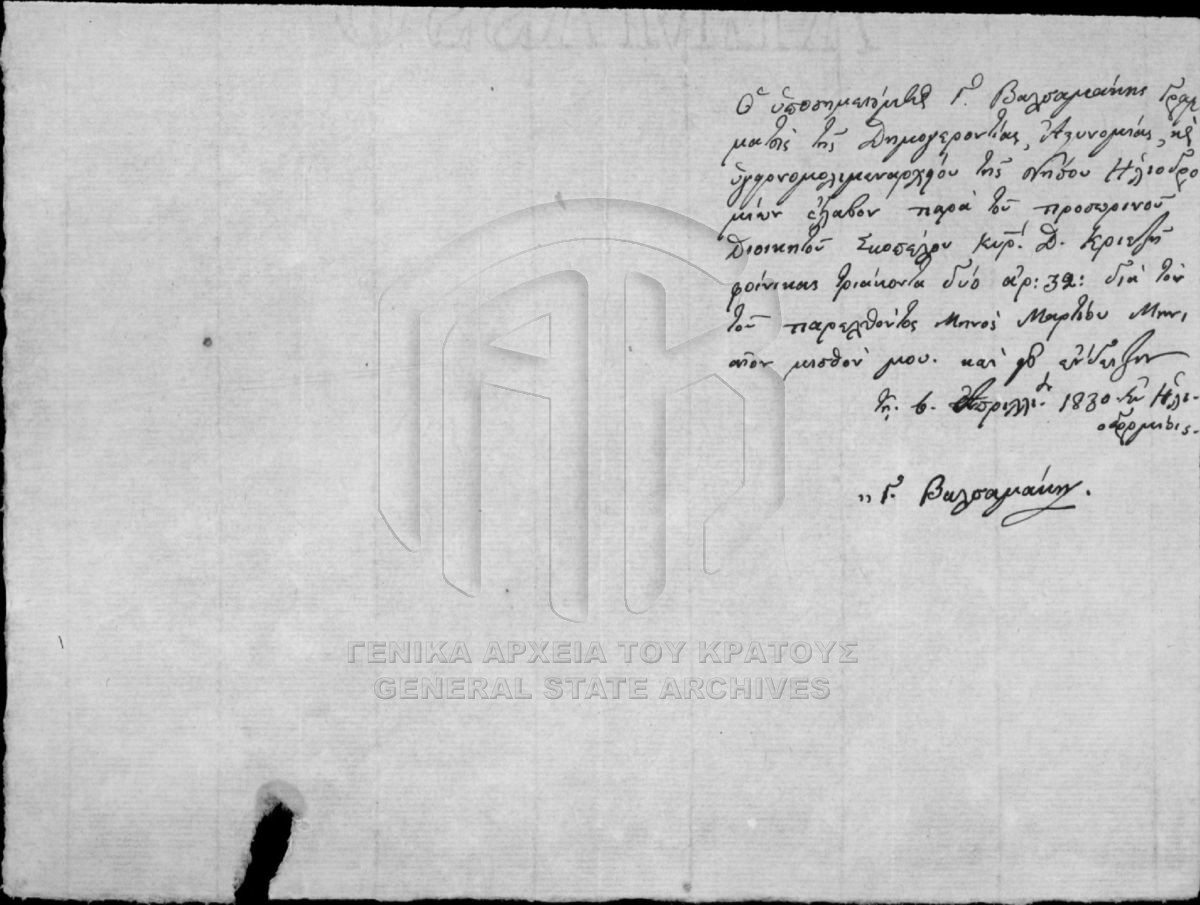 Ὁ ὑποσημειούμενος Γ. Βαλσαμάκης Γραμ
ματεὺς τῆς Δημογεροντίας, Ἀστυνομίας, καὶ
τῆς Νήσου Ἡλιοδρο
μίων ἔλαβον παρὰ τοῦ προσωρινοῦ
Διοικητοῦ Σκοπέλου Κυρ: Δ. Κριεζῆ
φοίνικας τριάκοντα δύο ἀρ: 32: διὰ τὸν
τοῦ παρελθόντος Μηνὸς Μαρτίου Μην,
αῖον μισθόν μου. καὶ εἰς ἔνδειξιν
τῇ. 6. Ἀπριλλί. 1830 ἐν Ἡλι-
οδρομίοις.
" Γ. Βαλσαμάκης.
ΓΕΝΙΚΑ ΑΡΧΕΙΑ ΤΟΥ ΚΡΑΤΟΥΣ
GENERAL STATE ARCHIVES